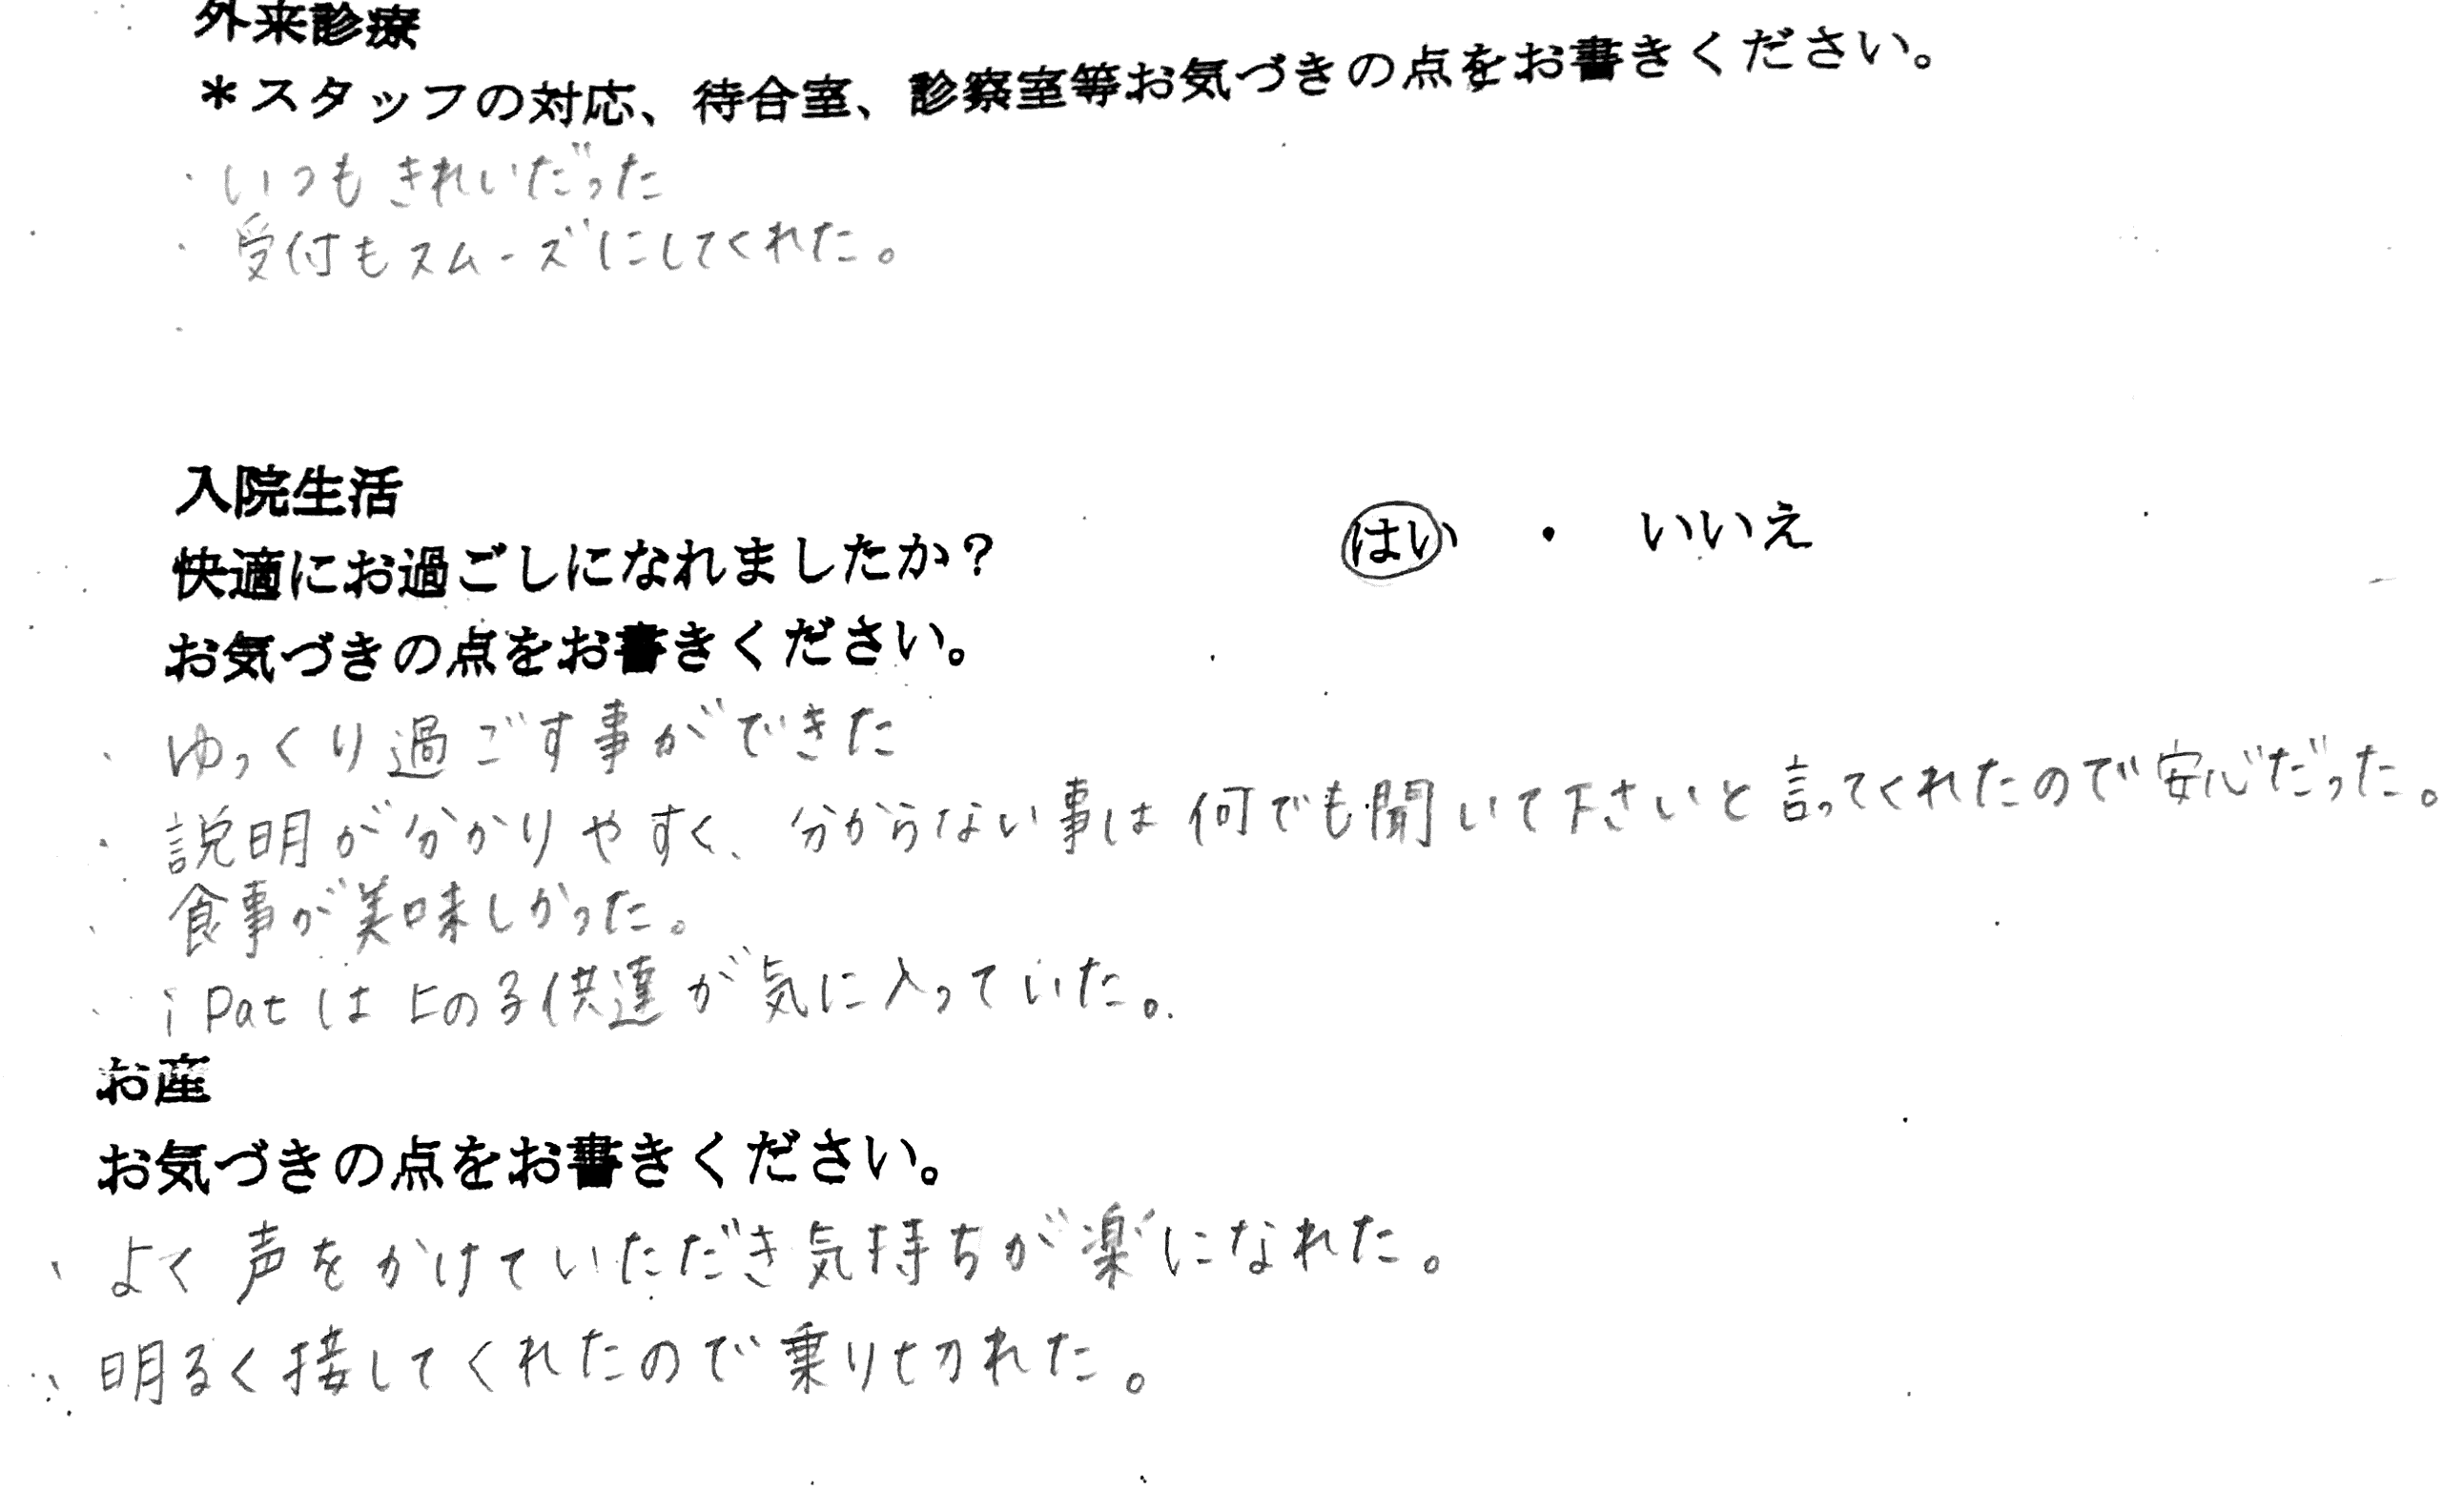 外来診療
＊スタッフの対応、待合室、診察室等お気づきの点をお書きください。
・いつもきれいだった
・受付もスムーズにしてくれた。
・
入院生活
快適にお過ごしになれましたか？ はい ・ いいえ
お気づきの点をお書きください。
・ゆっくり過ごす事ができた
・説明が分かりやすく、分からない事は何でも聞いて下さいと言ってくれたので安心だった。
・食事が美味しかった。
・iPatは上の子供達が気に入っていた。
お産
お気づきの点をお書きください。
・よく声をかけていただき気持ちが楽になれた。
・明るく接してくれたので乗り切れた。